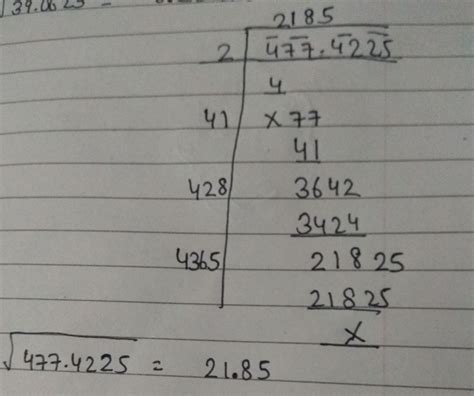 √39.0625 =
2185
2 477.4225
4
41 x 77
41
428 3642
3424
4365 21825
21825
x
√477.4225 = 21.85